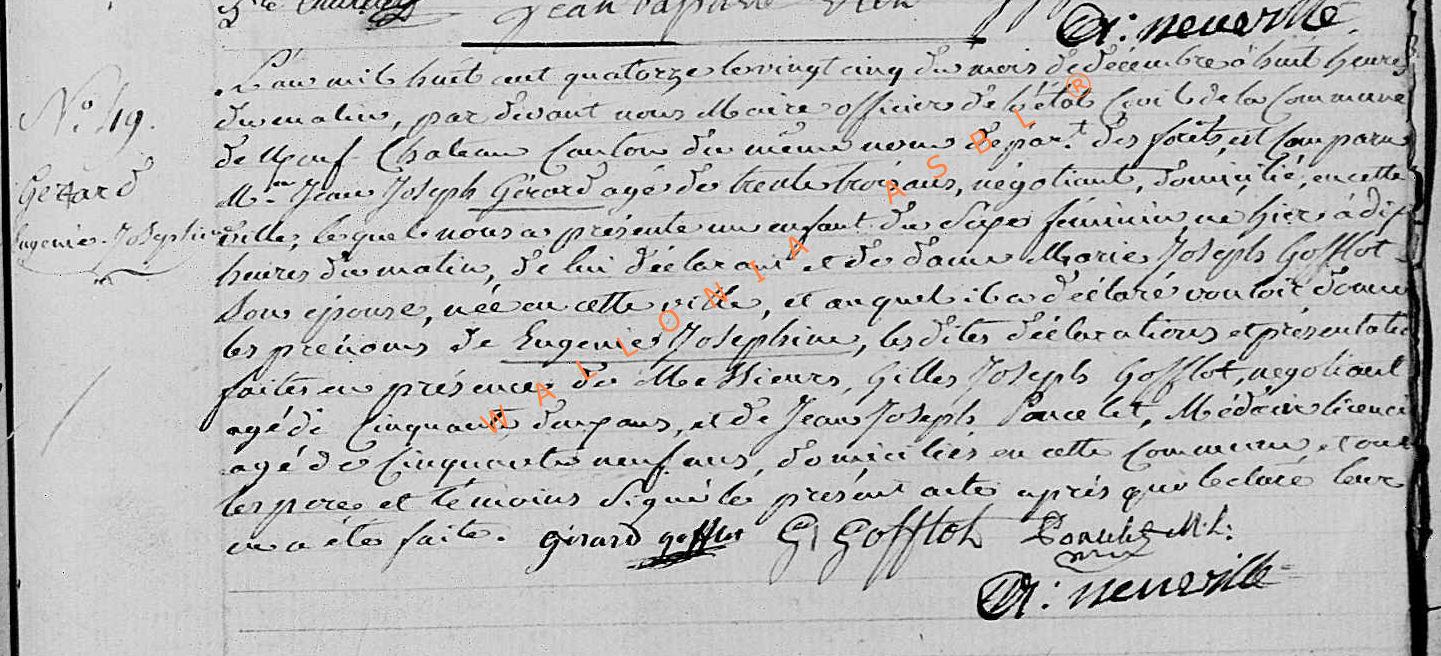 Jean
D: neuville
L'an mil huit cent quatorze le vingt cinq du mois de décembre à huit heures
du matin, par devant nous Maire officier de l'état Civil de la Commune
de Neuf-Chateau Canton du même nom dépar.t des forêts, est Comparu
M. Jean Joseph Gérard agé de trente trois ans, négotiant, domicilié, en cette
ville, lequel nous a présenté un enfant du Sexe féminin, né hier à dix
heures du matin, de lui déclarant et de dame Marie Joseph Gofflot
Son épouse, née en cette ville, et auquel il a déclaré vouloir donner
les prénoms de Eugenie Josephine, les dites déclarations et présentation
faites en présence de Messieurs, Gilles Joseph Gofflot, negotiant
agé de Cinquante deux ans, et de Jean Joseph Poncelet, Médecin licencié
agé de Cinquante neuf ans, domiciliés en cette Commune, et ont
les pere et témoins Signé le présent acte après que lecture leur
en a été faite. Gérard gofflot G J Gofflot Poncelet M. L:
D: neuville
N.o 49.
Gérard
Eugenie-Josephine
WALLONIA ASBL ®